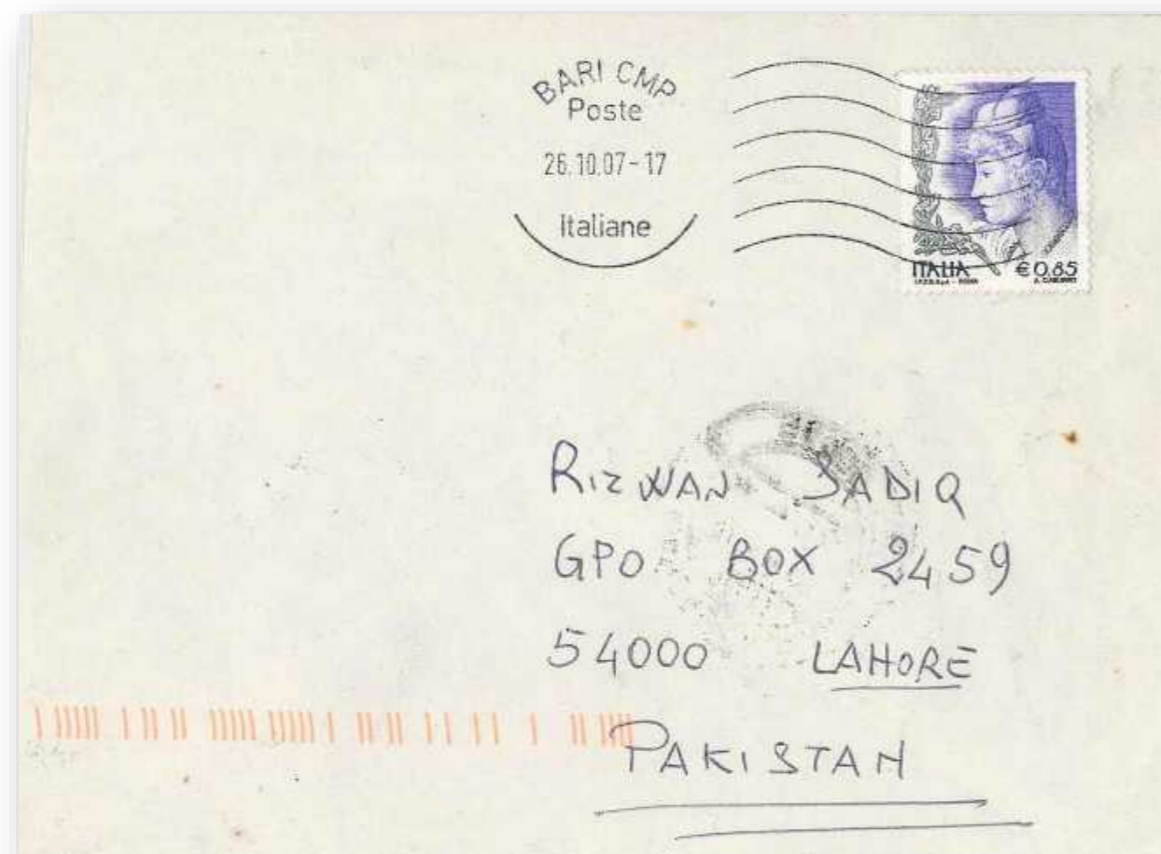 BARI CMP
Poste
26.10.07-17
Italiane
ITALIA €0,85
RIZWAN SADIQ
GPO BOX 2459
54000 LAHORE
PAKISTAN